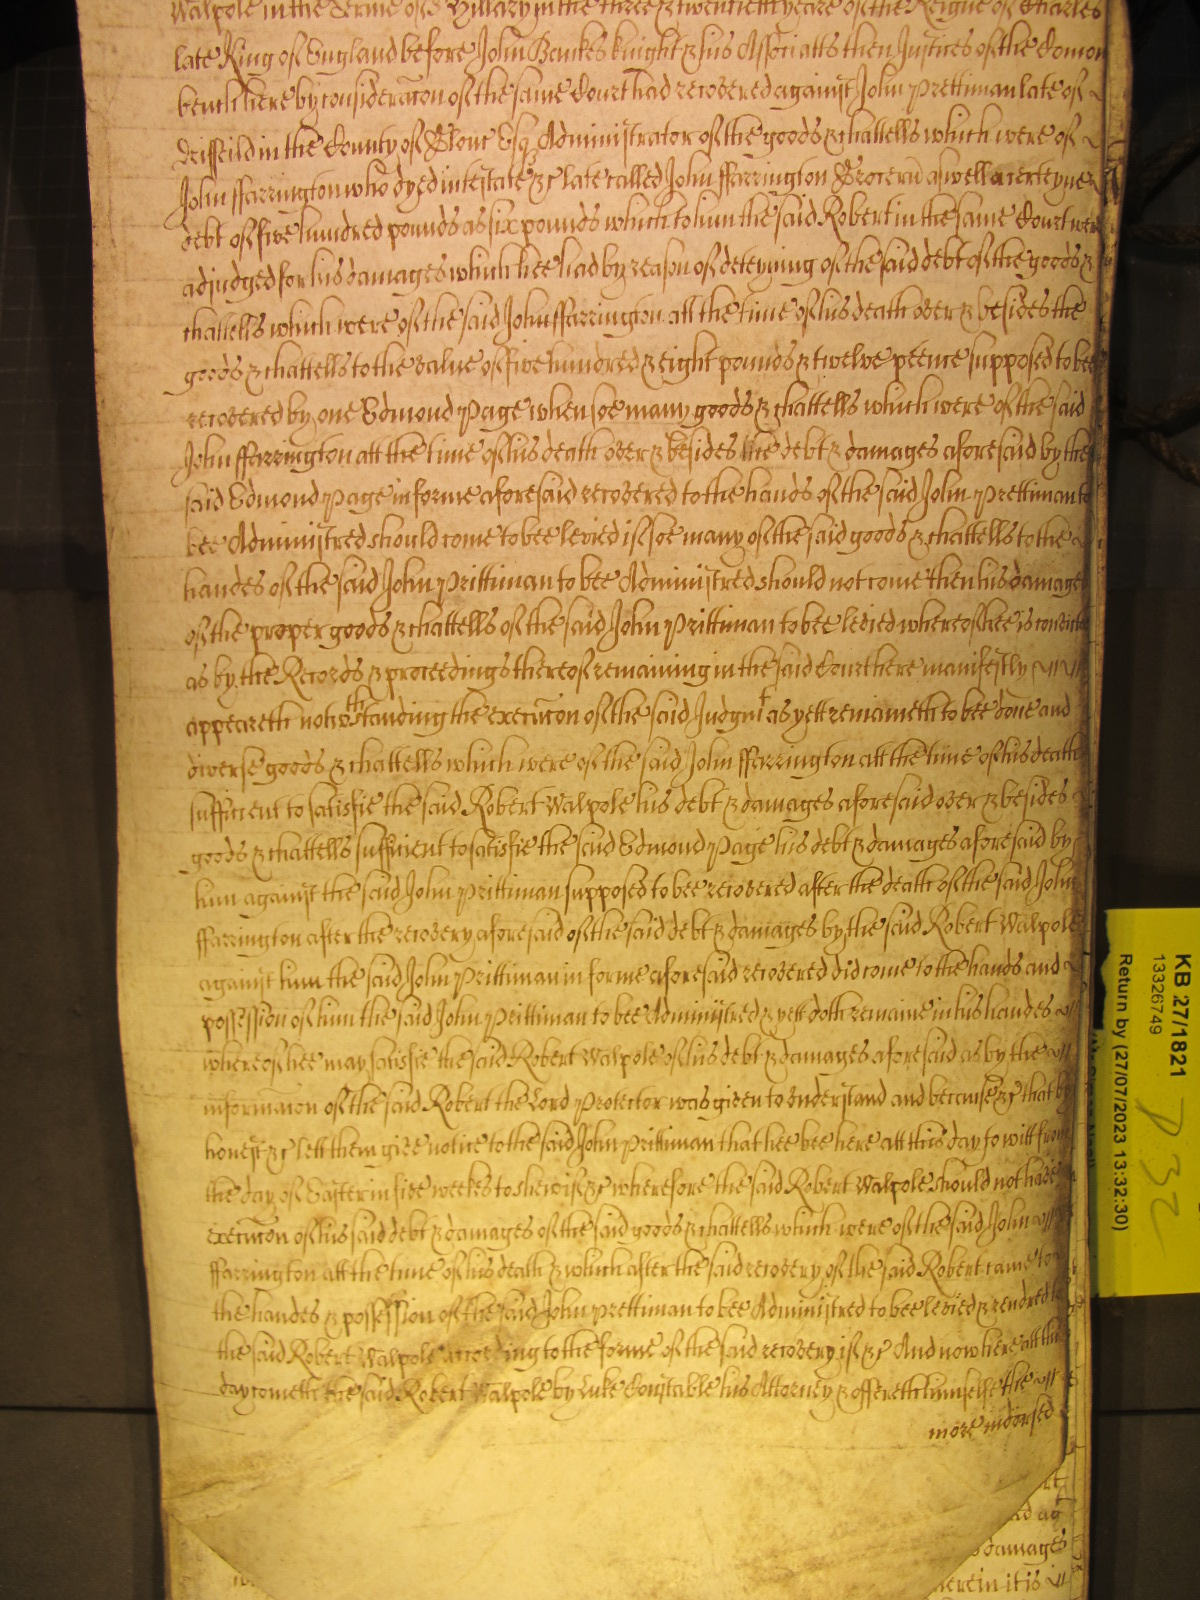 Walpole in the Terme of S Hillary in the three & twentieth yeare of the Reigne of Charles
late King of England before John Bankes knight & his Associatts then Justices of the Comon
bench here by consideracon of the same Court had recovered against John Prettiman late of
Driffeild in the County of Glouc Esq Administrator of the goods & chattells which were of
John ffarrington who dyed intestate &c late called John ffarrington Groceru aswell a certeyne
debt of five hundred pounds as six pounds which to him the said Robert in the same Court were
adjudged for his damages which hee had by reason of deteyning of the said debt of the goods &
chattells which were of the said John ffarrington att the time of his death over & besides the
goods & chattells to the value of five hundred & eight pounds & twelve peence supposed to bee
recovered by one Edmond Page when soe many goods & chattells which were of the said
John ffarrington att the time of his death over & besides the debt & damages aforesaid by the
said Edmond Page in forme aforesaid recovered to the hands of the said John Prettiman to
bee Administred should come to bee levied if soe many of the said goods & chattells to the
handes of the said John Prittiman to bee Administred should not come then his damages
of the proper goods & chattells of the said John Prittiman to bee levied whereof hee is convicted
as by the Records & proceedings thereof remaining in the said Court here manifestly
appeareth notwthstanding the execucon of the said Judgmt as yett remaineth to bee done and
diverse goods & chattells which were of the said John ffarrington att the time of his death
sufficient to satisfie the said Robert Walpole his debt & damages aforesaid over & besides
goods & chattells sufficient to satisfie the said Edmond Page his debt & damages aforesaid by
him against the said John Prittiman supposed to bee recovered after the death of the said John
ffarrington after the recovery aforesaid of the said debt & damages by the said Robert Walpole
against him the said John Prittiman in forme aforesaid recovered did come to the hands and
possession of him the said John Prittiman to bee Administred & yett doth remaine in his handes
whereof hee may satisfie the said Robert Walpole of his debt & damages aforesaid as by the
informacon of the said Robert the Lord Protector was given to understand and because &c that by
honest &c lett them give notice to the said John Prittiman that hee bee here att this day to witt from
the day of Easter in five weekes to shew if &c wherefore the said Robert Walpole should not have
execucon of his said debt & damages of the said goods & chattells which were of the said John
ffarrington att the time of his death & which after the said recovery of the said Robert came to
the handes & possession of the said John Prettiman to bee Administred to bee levied & rendred to
the said Robert Walpole according to the forme of the said recovery if &c And now here att this
day cometh the said Robert Walpole by Luke Constable his Attorney & offereth himselfe the
more indorsed
ad ag
damages
herein it is
KB 27/1821
13326749
Return by (27/07/2023 13:32:30)
D 32